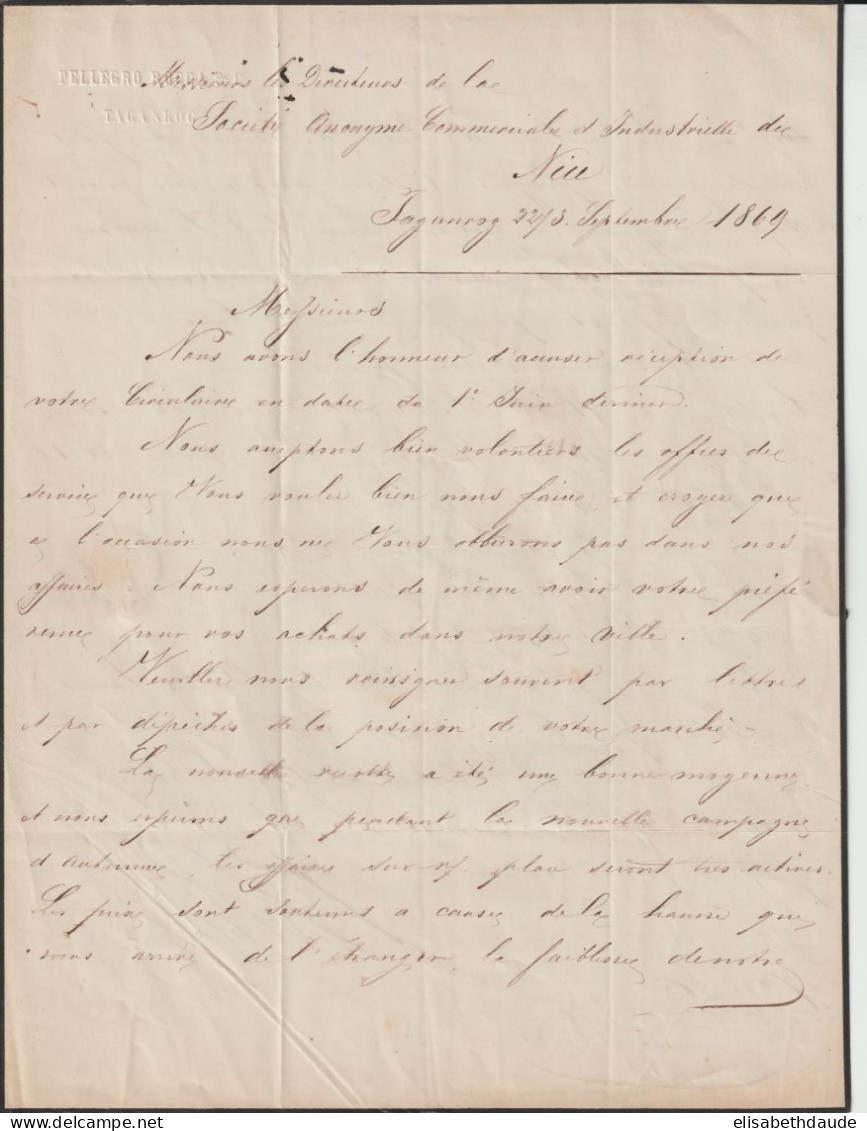 PELLEGRO ROCCA & C.
TAGANROG
Messieurs les Directeurs de la
Societé Anonyme Commerciale et Industrielle de
Nice
Taganrog 22/3. Septembre 1869
Messieurs
Nous avons l'honneur d'accuser réception de
votre Circulaire en date du 1r Juin dernier.
Nous acceptons bien volontiers les offres de
service que Vous voulez bien nous faire, et croyez que
a l'occasion nous ne Vous oublierons pas dans nos
affaires. Nous esperons de même avoir votre préfé
rence pour vos achats dans notre ville.
Veuillez nous rensigner souvent par lettres
et par dépêches de la position de votre marché.
La nouvelle recolte a été une bonne moyenne
et nous espérons que pendant la nouvelle campagne
d'Automne, les affaires sur n/ place seront très actives.
Les prix sont soutenus a cause de la hausse que
nous arrive de l'étranger, la faiblesse de notre
elisabethdaude